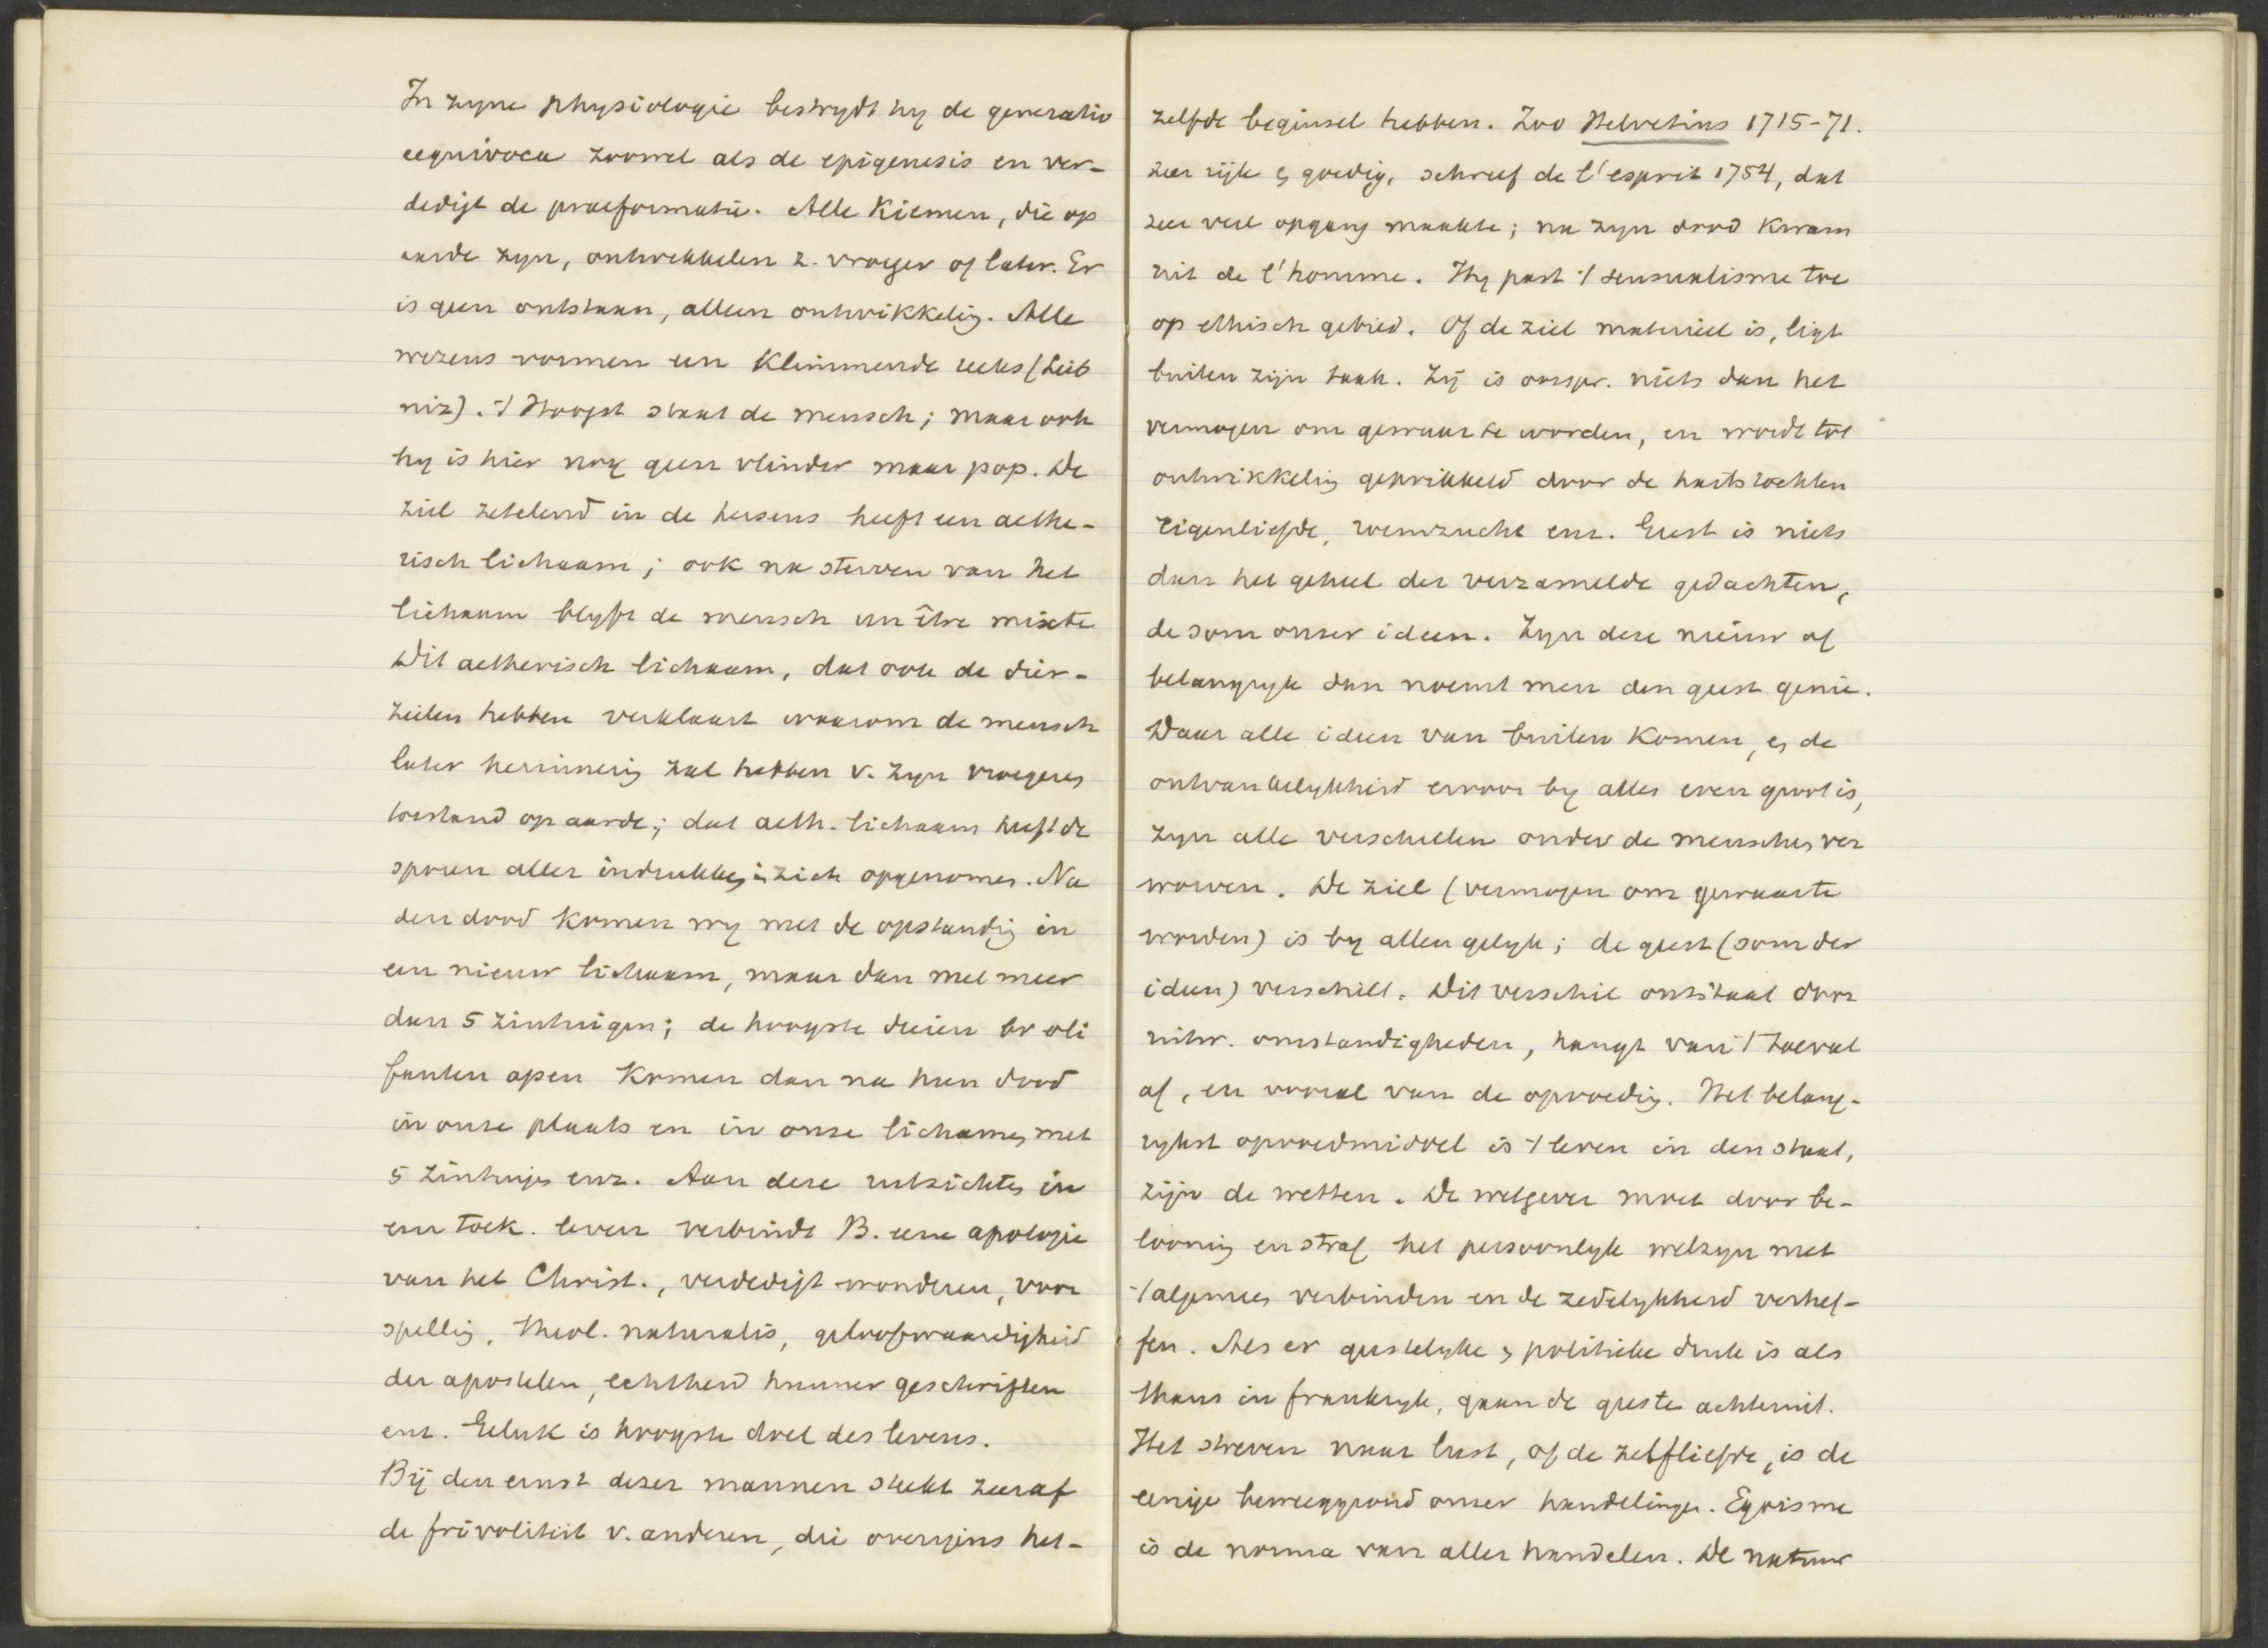 In zyne physiologie bestrydt hy de generatio
aequivoca zoowel als de epigenesis en ver-
dedigt de praeformatie. Alle Kiemen, die op
aarde zyn, ontwikkelen z. vroeger of later. Er
is geen ontstaan, alleen ontwikkelig. Alle
wezens vormen een Klimmende reeks (Leib
niz). 't Hoogst staat de mensch; maar ook
hy is hier nog geen vlinder maar pop. De
ziel zetelend in de hersens heeft een aethe-
risch lichaam; ook na sterven van het
lichaam blyft de mensch un être mixte
Dit aetherisch lichaam, dat ook de dier-
zielen hebben verklaart waarom de mensch
later herinnerig zal hebben v. zyn vroegeren
toestand op aarde; dat aeth. lichaam heeft de
sporen aller indrukken in zich opgenomen. Na
den dood komen wy met de opstandig in
een nieuw lichaam, maar dan met meer
dan 5 zintuigen; de hoogste dieren bv oli
fanten apen Komen dan na hun dood
in onze plaats en in onze lichamen met
5 zintuigen enz. Aan deze uitzichten in
een toek. leven verbindt B. eene apologie
van het Christ., verdedigt wonderen, voor
spellig, theol. naturalis, geloofwaardigheid
der apostelen, echtheid hunner geschriften
enz. Geluk is hoogste doel des levens.
Bij den ernst dezer mannen steekt zeer af
de frivoliteit v. anderen, die overigens het-
zelfde beginsel hebben. Zoo Helvetius 1715-71.
zeer rijk en goedig, schreef de l'esprit 1754, dat
zeer veel opgang maakte; na zyn dood Kwam
uit de l'homme. Hy past 't sensualisme toe
op ethisch gebied. Of de ziel materieel is, ligt
buiten zijn taak. Zij is oorspr. niets dan het
vermogen om gewaar te worden, en wordt tot
ontwikkelig geprikkeld door de hartstochten
Eigenliefde, roemzucht enz. Geest is niets
dan het geheel der verzamelde gedachten,
de som onzer ideen. Zyn deze nieuw of
belangryk dan noemt men den geest genie.
Daar alle ideen van buiten Komen, en de
ontvankelykheid ervoor by allen even groot is,
zyn alle verschillen onder de menschen ver
worven. De ziel (vermogen om gewaar te
worden) is by allen gelyk; de geest (som der
ideen) verschilt. Dit verschil ontstaat door
uitw. omstandigheden, hangt van 't toeval
af, en vooral van de opvoedig. Het belang-
rykst opvoedmiddel is 't leven in den staat,
zijn de wetten. De wetgever moet door be-
loonig en straf het persoonlyk welzyn met
't algemeen verbinden en de zedelykheid verhef-
fen. Als er geestelyke en politieke druk is als
thans in frankryk, gaan de geesten achteruit.
Het streven naar lust, of de zelfliefde, is de
eenige beweeggrond onzer handelingen. Egoisme
is de norma van aller handelen. De natuur